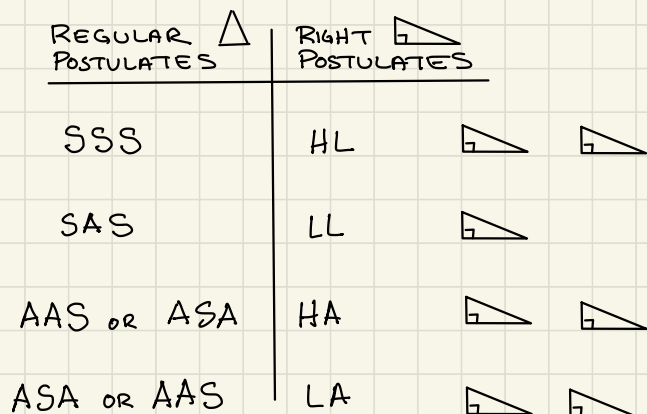 REGULAR
POSTULATES
RIGHT
POSTULATES
SSS
HL
SAS
LL
AAS OR ASA
HA
ASA OR AAS
LA